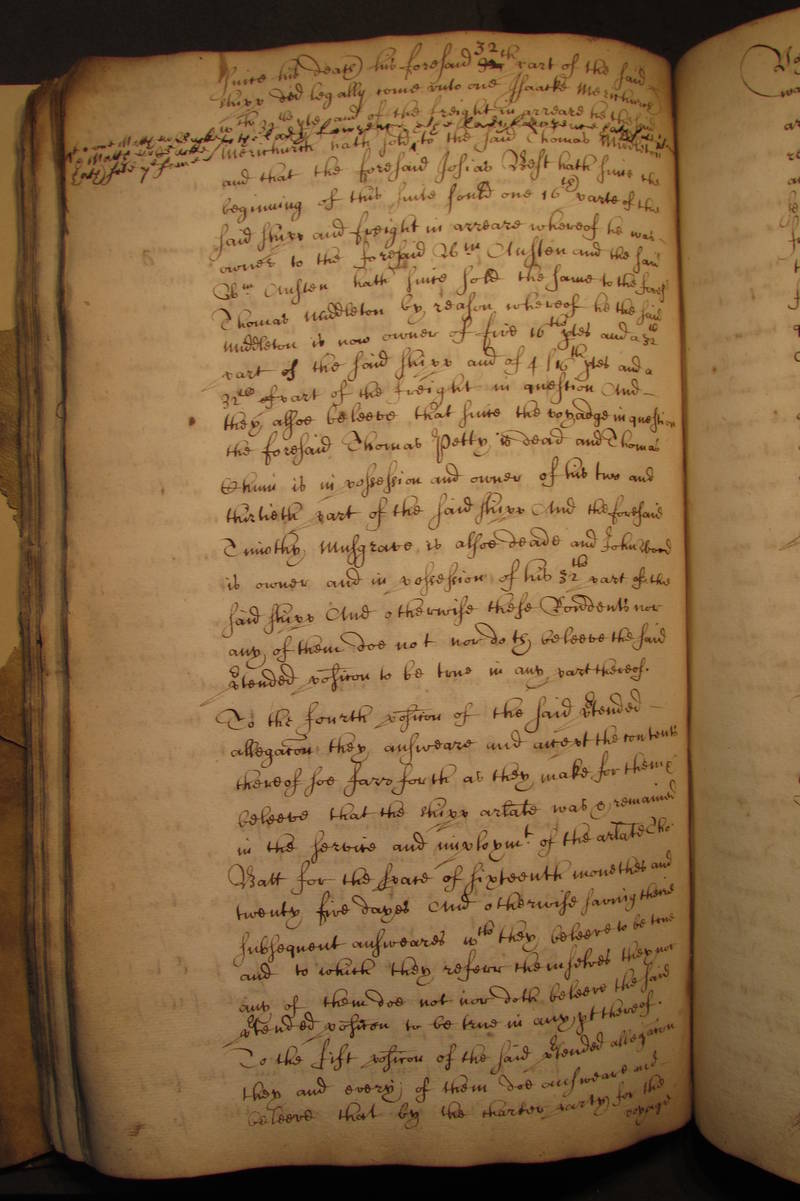 since his death his foresaid 32th part of the said
shipp did legally come unto one Isaacke Merichurch
pte and of the freight in arreare he the said
Merichurch hath sold to the said Thomas Midleton
and that the foresaid Josias Best hath since the
beginning of this suite sould one 16th parte of the
said shipp and freight in arreare whereof he was
owner to the foresaid Wm Austen and the said
Wm Austen hath since sold the same to the fores
Thomas Middleton by reason whereof he the said
Middleton is now owner of five 16th ptes and a 32th
part of the said shipp and of 4 16th ptes and a
32th part of the freight in question And
they alsoe beleeve that since the voyadge in question
the foresaid Thomas Petty is dead and Thomas
is in possession and owner of his two and
thirtieth part of the said shipp And the foresaid
Timothy Musgrave is alsoe deade and John Wood
is owner and in possession of his 32th part of the
said shipp And otherwise these Rondents nor
any of them doe not nor doth beleeve the said
ptended posicon to be true in any part thereof.
To the fourth posicon of the said ptended
allegacon they answeare and averr the contents
thereof soe farr forth as they make for them &
beleeve that the shipp arlate was & remained
in the service and imploymt of the arlate Tho:
Batt for the space of sixteenth monethes and
twenty five dayes And otherwise saving theire
subsequent answeares wth they beleeve to be true
and to which they referr themselves they nor
any of them doe not nor doth beleeve the said
ptended posicon to be true in any pt thereof.
To the fift posicon of the said ptended allegacon
they and every of them doe answeare and
beleeve that by the charter party for the
voyage